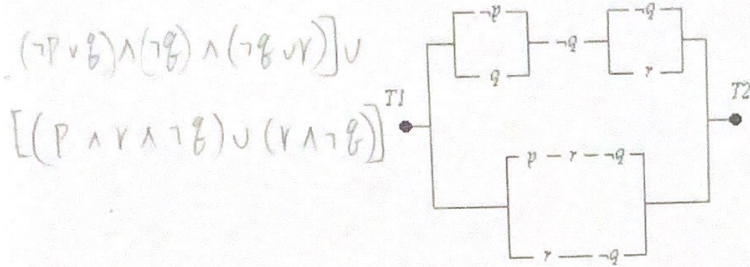 (¬P ∨ q) ∧ (¬q) ∧ (¬q ∪ r)] ∪
[(P ∧ r ∧ ¬q) ∪ (r ∧ ¬q)]
¬p
q
¬q
¬q
r
T1
T2
p r ¬q
r ¬q